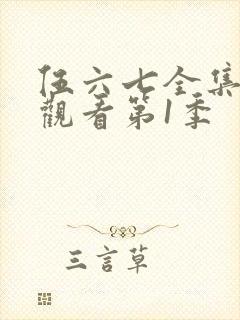 伍六七全集
觀看第1季
三言草